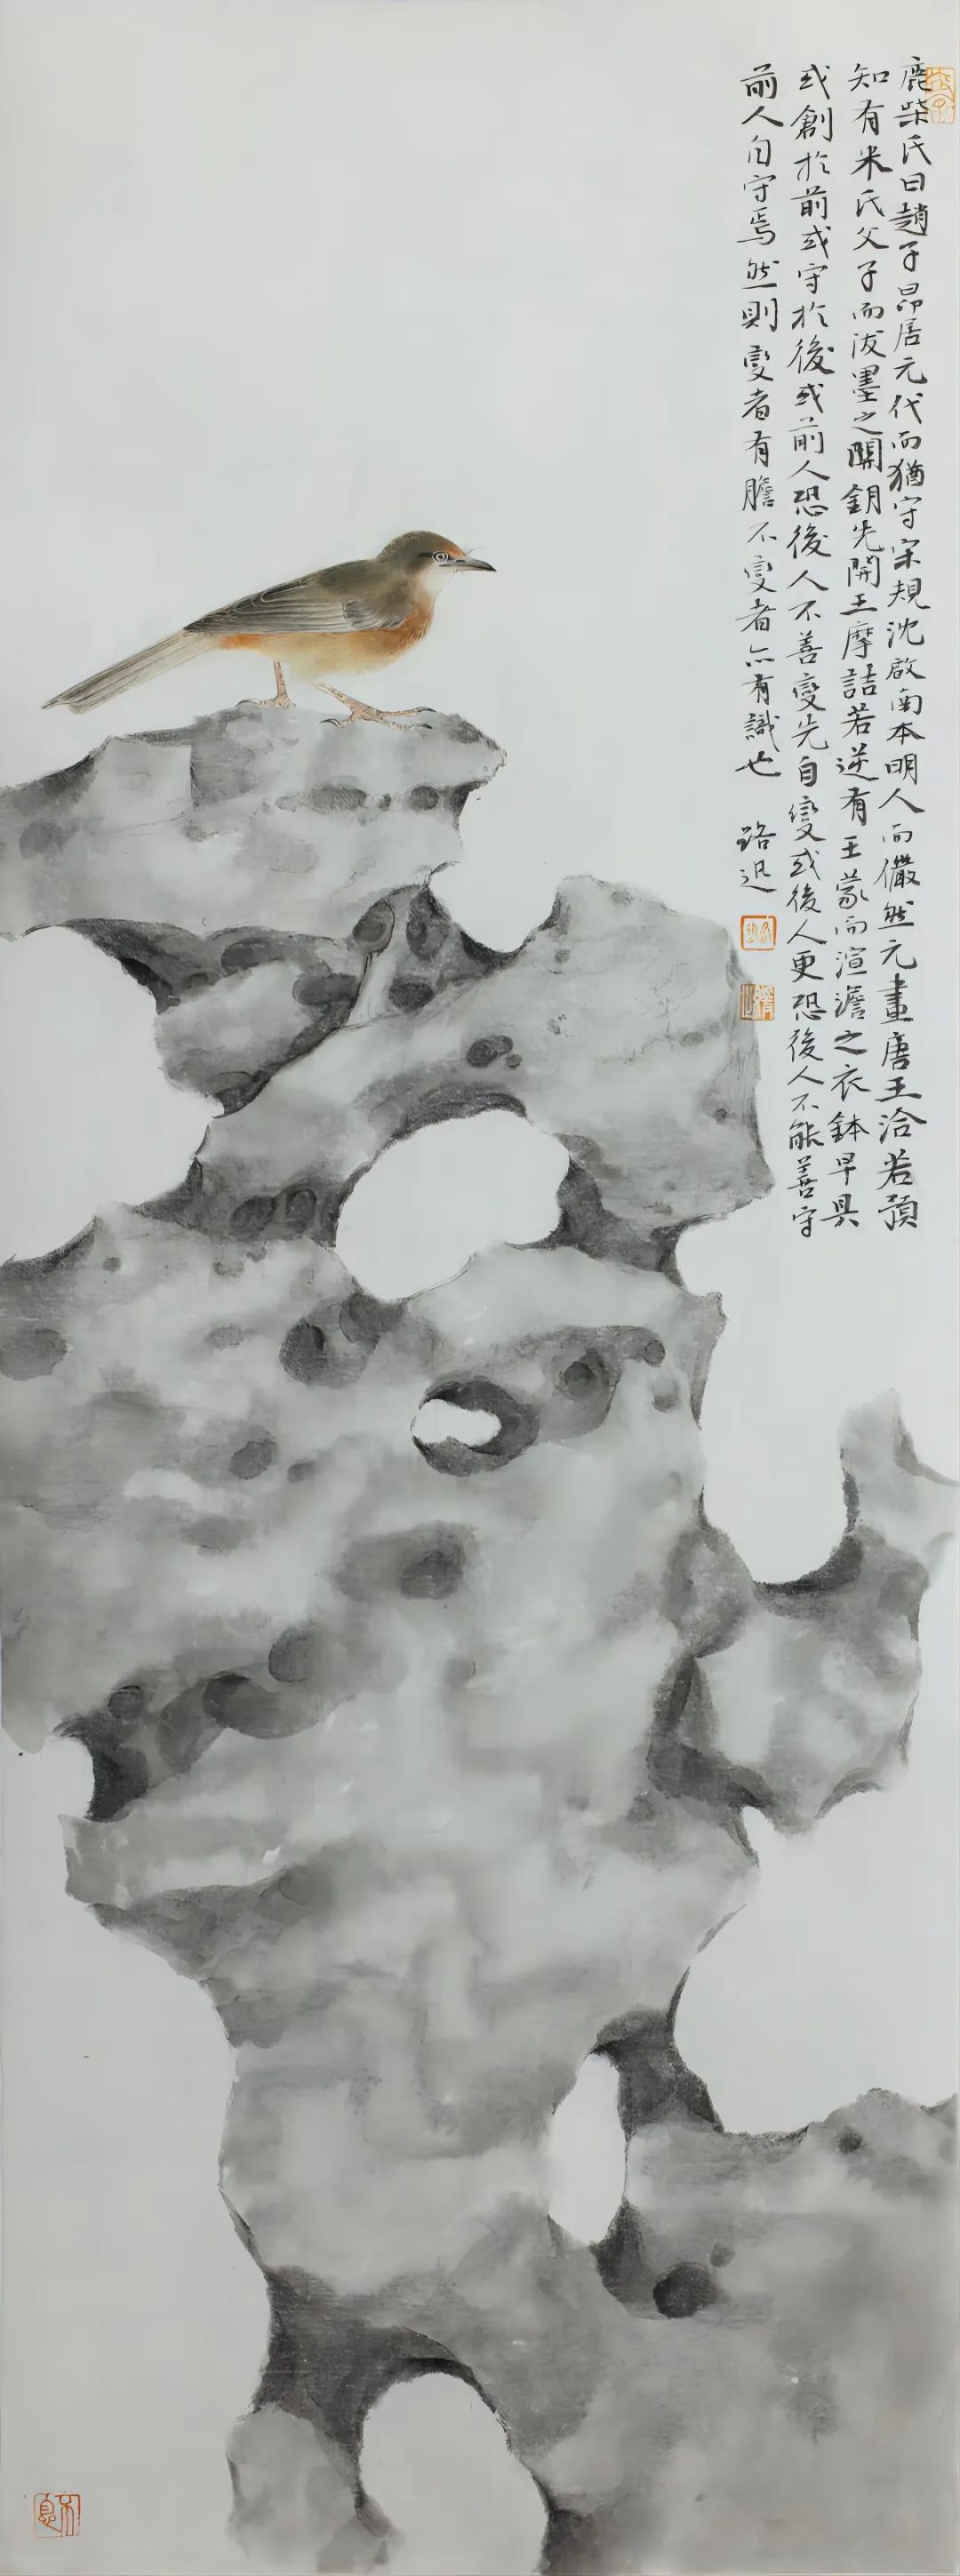 鹿柴氏曰趙子昂居元代而猶守宋規沈啟南本明人而儼然元畫唐王洽若預
知有米氏父子而潑墨之關鑰先開王摩詰若逆有王蒙而渲澹之衣鉢早具
或創於前或守於後或前人恐後人不善變先自變或後人更恐後人不能善守
前人自守焉然則變者有膽不變者亦有識也 路迅